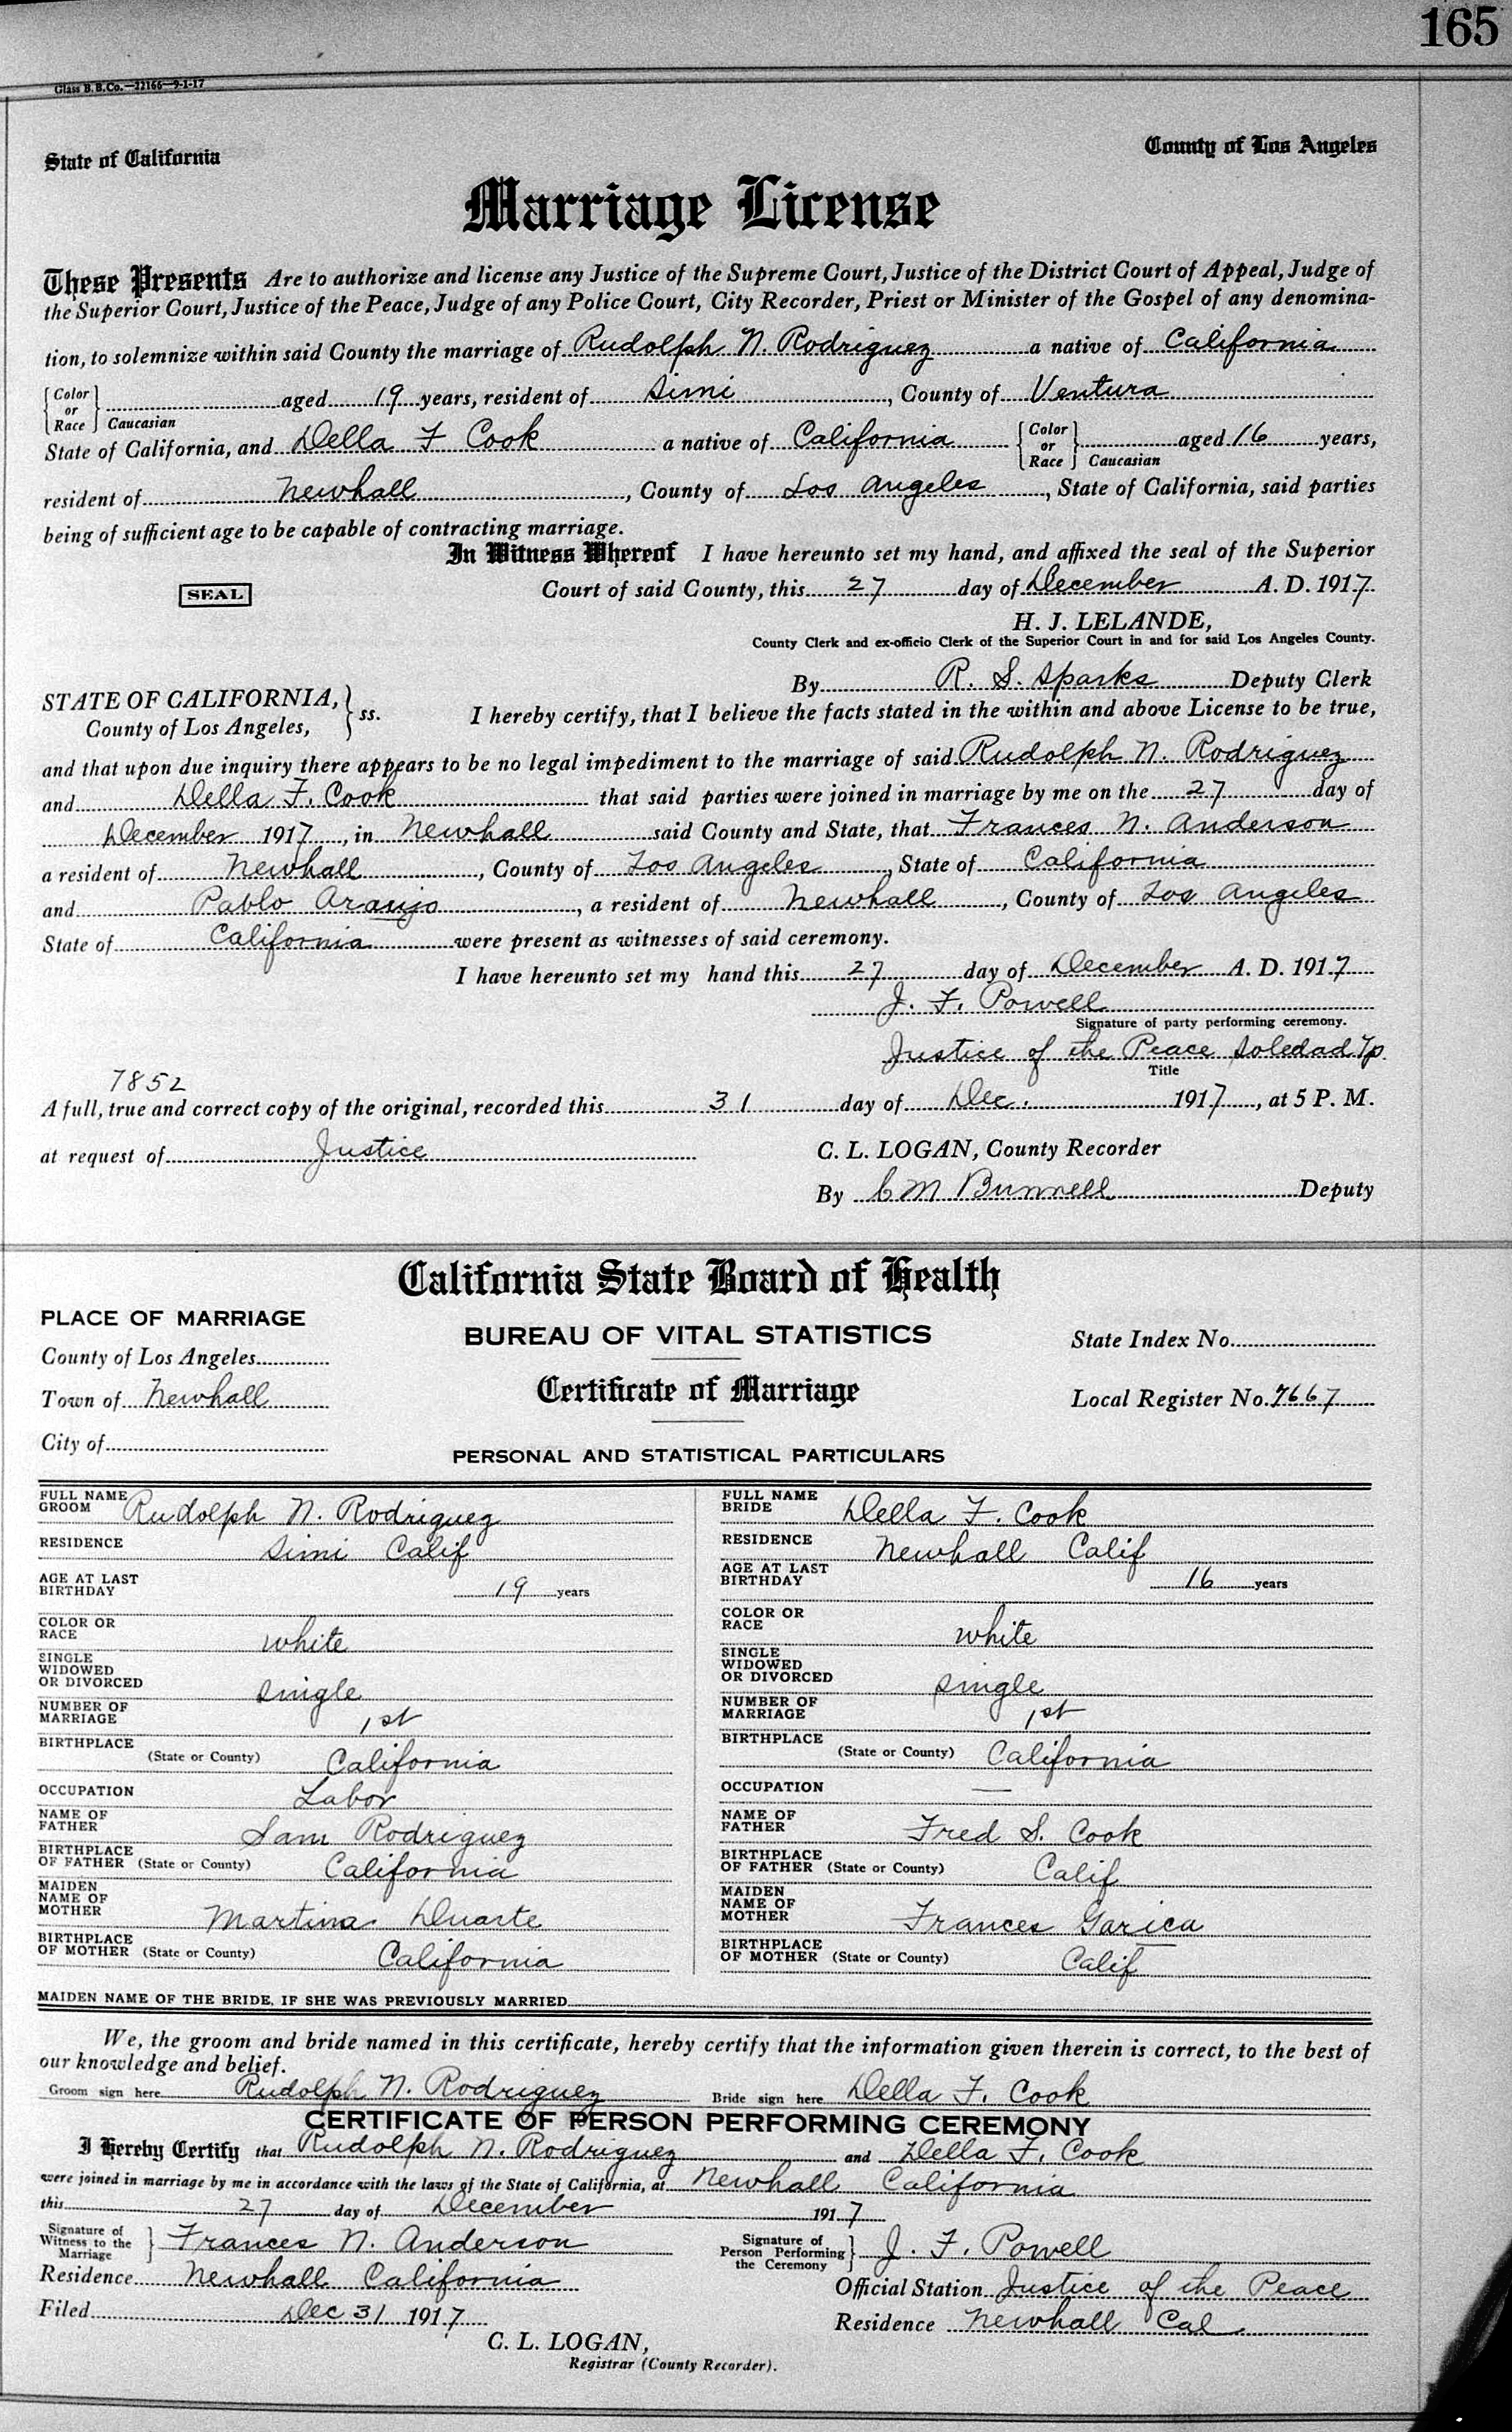 165
Glass B. B. Co.—22166—9-1-17
State of California County of Los Angeles
Marriage License
These Presents Are to authorize and license any Justice of the Supreme Court, Justice of the District Court of Appeal, Judge of
the Superior Court, Justice of the Peace, Judge of any Police Court, City Recorder, Priest or Minister of the Gospel of any denomina-
tion, to solemnize within said County the marriage of Rudolph N. Rodriguez a native of California
Color or Race Caucasian aged 19 years, resident of Simi, County of Ventura
State of California, and Della F Cook a native of California Color or Race Caucasian aged 16 years,
resident of Newhall, County of Los Angeles, State of California, said parties
being of sufficient age to be capable of contracting marriage.
In Witness Whereof I have hereunto set my hand, and affixed the seal of the Superior
SEAL Court of said County, this 27 day of December A. D. 1917.
H. J. LELANDE,
County Clerk and ex-officio Clerk of the Superior Court in and for said Los Angeles County.
By R. S. Sparks Deputy Clerk
STATE OF CALIFORNIA,
County of Los Angeles, } ss. I hereby certify, that I believe the facts stated in the within and above License to be true,
and that upon due inquiry there appears to be no legal impediment to the marriage of said Rudolph N. Rodriguez
and Della F. Cook that said parties were joined in marriage by me on the 27 day of
December 1917, in Newhall said County and State, that Frances N. Anderson
a resident of Newhall, County of Los Angeles, State of California
and Pablo Araujo, a resident of Newhall, County of Los Angeles
State of California were present as witnesses of said ceremony.
I have hereunto set my hand this 27 day of December A. D. 1917
J. F. Powell
Signature of party performing ceremony.
Justice of the Peace Soledad Tp.
Title
7852
A full, true and correct copy of the original, recorded this 31 day of Dec. 1917, at 5 P. M.
at request of Justice C. L. LOGAN, County Recorder
By C M Bunnell Deputy
California State Board of Health
PLACE OF MARRIAGE
BUREAU OF VITAL STATISTICS
State Index No.
County of Los Angeles
Certificate of Marriage
Town of Newhall
Local Register No. 7667
City of
PERSONAL AND STATISTICAL PARTICULARS
FULL NAME GROOM Rudolph N. Rodriguez
FULL NAME BRIDE Della F. Cook
RESIDENCE Simi Calif
RESIDENCE Newhall Calif
AGE AT LAST BIRTHDAY 19 years
AGE AT LAST BIRTHDAY 16 years
COLOR OR RACE white
COLOR OR RACE white
SINGLE WIDOWED OR DIVORCED single
SINGLE WIDOWED OR DIVORCED single
NUMBER OF MARRIAGE 1st
NUMBER OF MARRIAGE 1st
BIRTHPLACE (State or County) California
BIRTHPLACE (State or County) California
OCCUPATION Labor
OCCUPATION —
NAME OF FATHER Sam Rodriguez
NAME OF FATHER Fred S. Cook
BIRTHPLACE OF FATHER (State or County) California
BIRTHPLACE OF FATHER (State or County) Calif
MAIDEN NAME OF MOTHER Martina Duarte
MAIDEN NAME OF MOTHER Frances Garica
BIRTHPLACE OF MOTHER (State or County) California
BIRTHPLACE OF MOTHER (State or County) Calif
MAIDEN NAME OF THE BRIDE, IF SHE WAS PREVIOUSLY MARRIED
We, the groom and bride named in this certificate, hereby certify that the information given therein is correct, to the best of
our knowledge and belief.
Groom sign here Rudolph N. Rodriguez Bride sign here Della F. Cook
CERTIFICATE OF PERSON PERFORMING CEREMONY
I Hereby Certify that Rudolph N. Rodriguez and Della F. Cook
were joined in marriage by me in accordance with the laws of the State of California, at Newhall California
this 27 day of December 1917
Signature of Witness to the Marriage } Frances N. Anderson
Signature of Person Performing the Ceremony } J. F. Powell
Residence Newhall California
Official Station Justice of the Peace
Filed Dec 31 1917
Residence Newhall Cal
C. L. LOGAN,
Registrar (County Recorder).